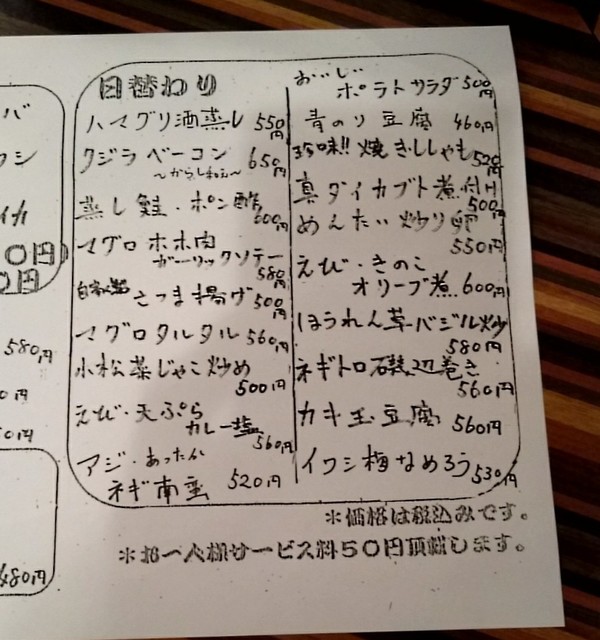 日替わり
ハマグリ酒蒸し 550円
クジラベーコン 650円
〜からし和え〜
蒸し鮭・ポン酢 600円
マグロホホ肉
ガーリックソテー 580円
自家製さつま揚げ 500円
マグロタルタル 560円
小松菜じゃこ炒め
500円
えび・天ぷら
カレー塩 560円
アジ・あったか
ネギ南蛮 520円
おいしい
ポテトサラダ 500円
青のり豆腐 460円
珍味!!焼きししゃも 520円
真ダイカブト煮付け
500円
めんたい炒り卵
550円
えび・きのこ
オリーブ煮 600円
ほうれん草バジル炒
580円
ネギトロ磯辺巻き
560円
カキ玉豆腐 560円
イワシ梅なめろう 530円
※価格は税込みです。
※お一人様サービス料50円頂戴します。
バ
ワシ
イカ
0円)
0円
580円
0円
0円
480円